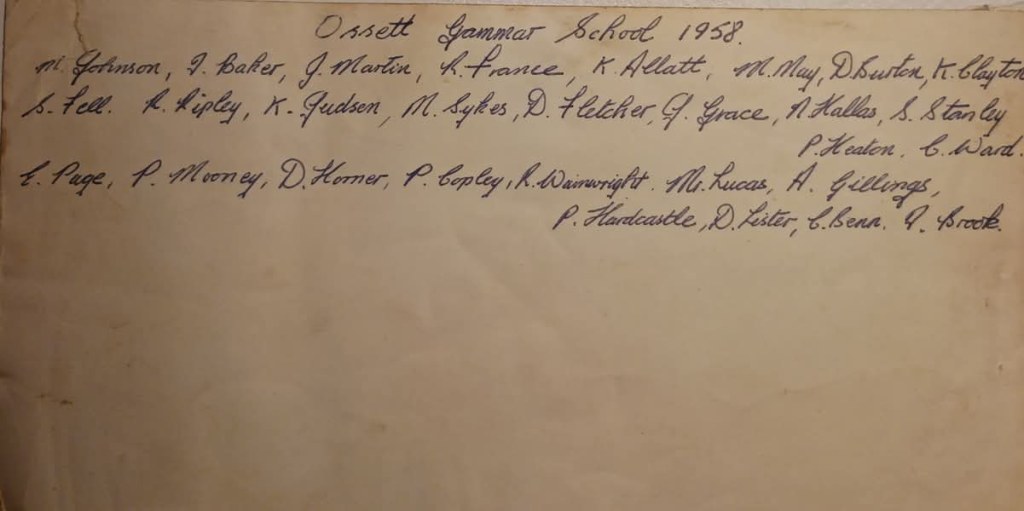 Ossett Gammar School 1958.
M. Johnson, J. Baker, J. Martin, R. France, K. Allatt, M. May, D Burton, K. Clayton
S. Fell. R. Ripley, K. Judson, M. Sykes, D. Fletcher, G. Grace, N Hallas, S. Stanley
P. Heaton. C. Ward.
E. Page, P. Mooney, D. Horner, P. Copley, R. Wainwright. Mr. Lucas, A. Gillings,
P. Hardcastle, D. Lister, C. Benn. J. Brook.